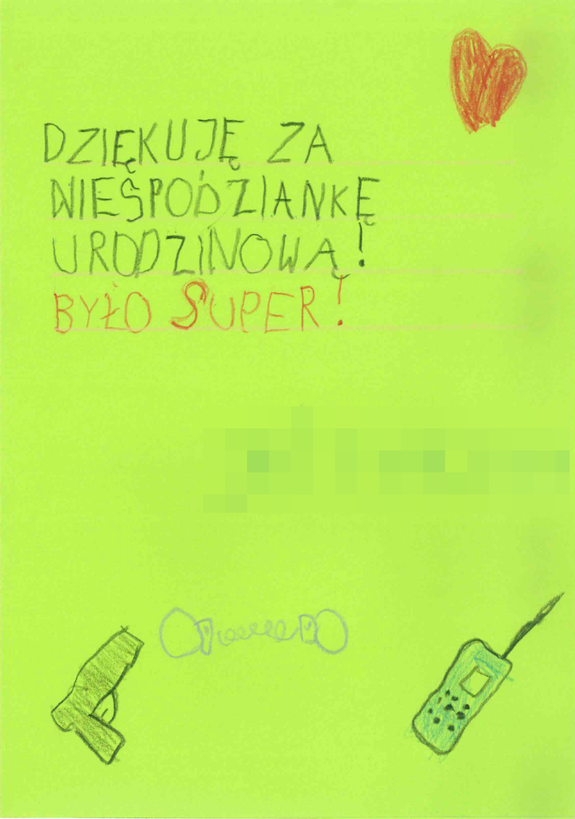 DZIĘKUJĘ ZA
NIEŚPODZIANKĘ
URODZINOWĄ!
BYŁO SUPER!